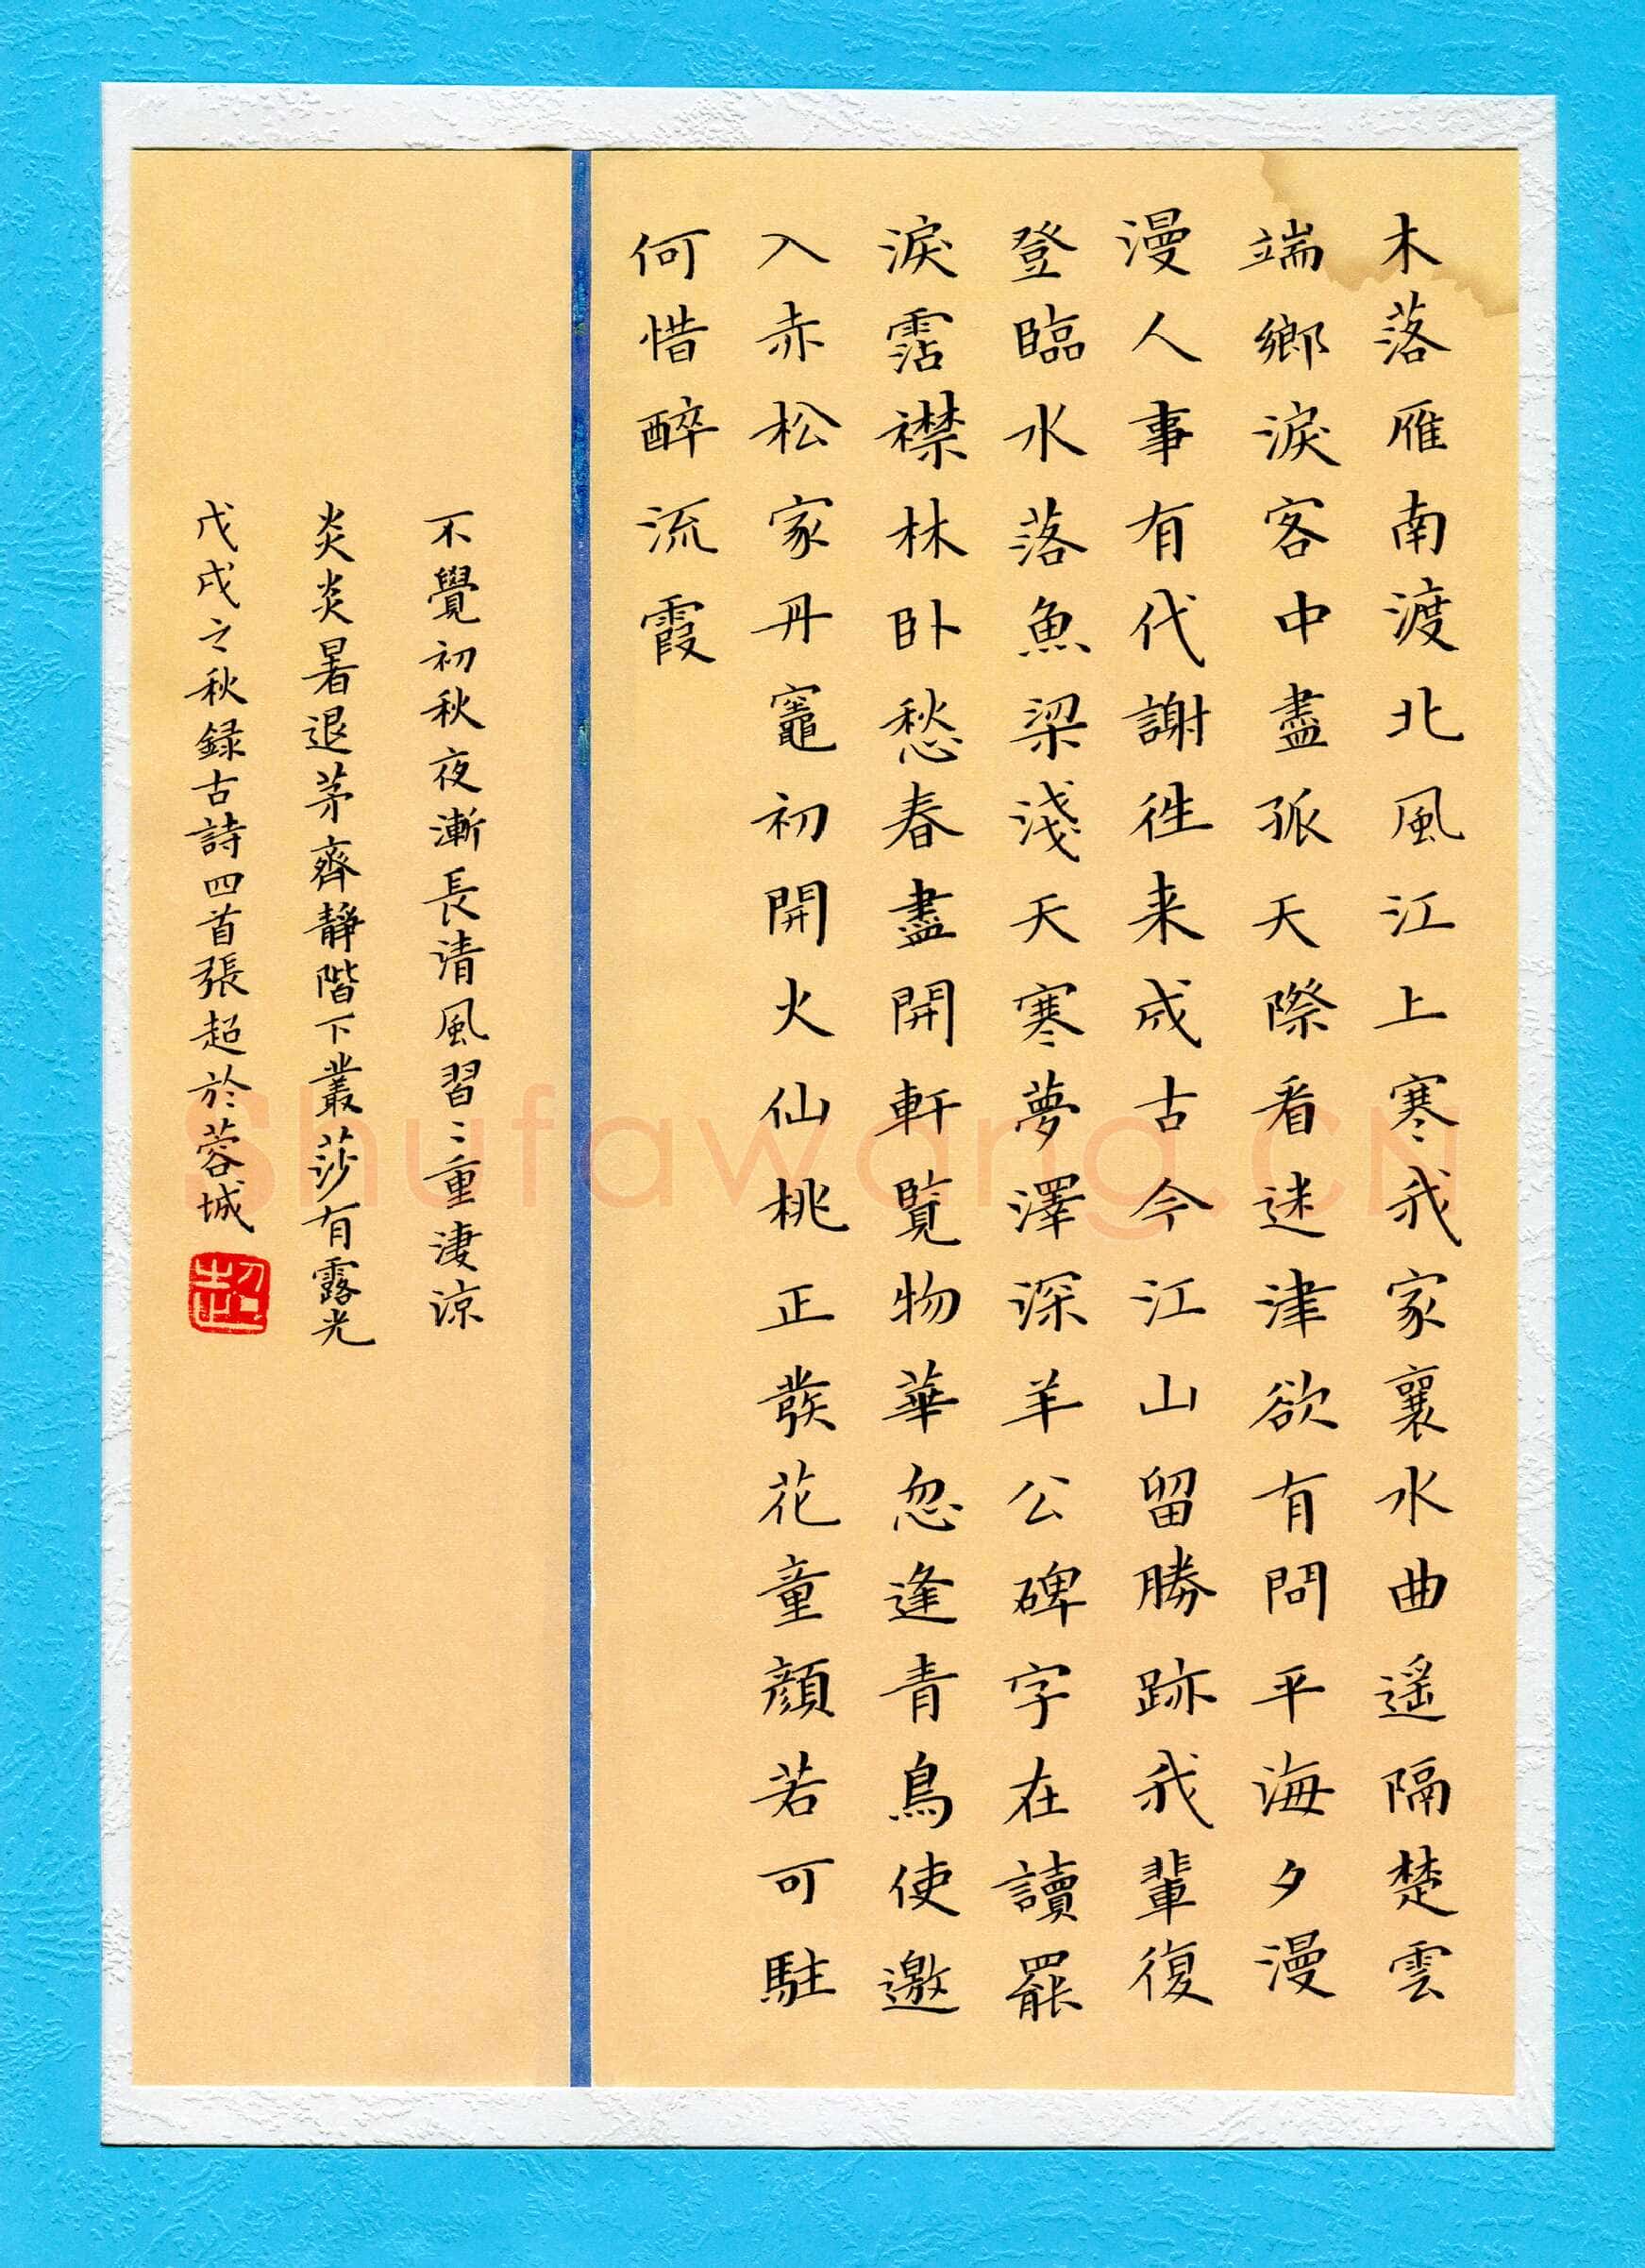 木落雁南渡北風江上寒我家襄水曲遥隔楚雲
端鄉淚客中盡孤天際看迷津欲有問平海夕漫
漫人事有代謝往来成古今江山留勝跡我輩復
登臨水落魚梁淺天寒夢澤深羊公碑字在讀罷
淚霑襟林卧愁春盡開軒覽物華忽逢青鳥使邀
入赤松家丹竈初開火仙桃正發花童顏若可駐
何惜醉流霞
不覺初秋夜漸長清風習〻重淒涼
炎炎暑退茅齊靜階下叢莎有露光
戊戌之秋録古詩四首張超於蓉城
超
Shufawang.CN